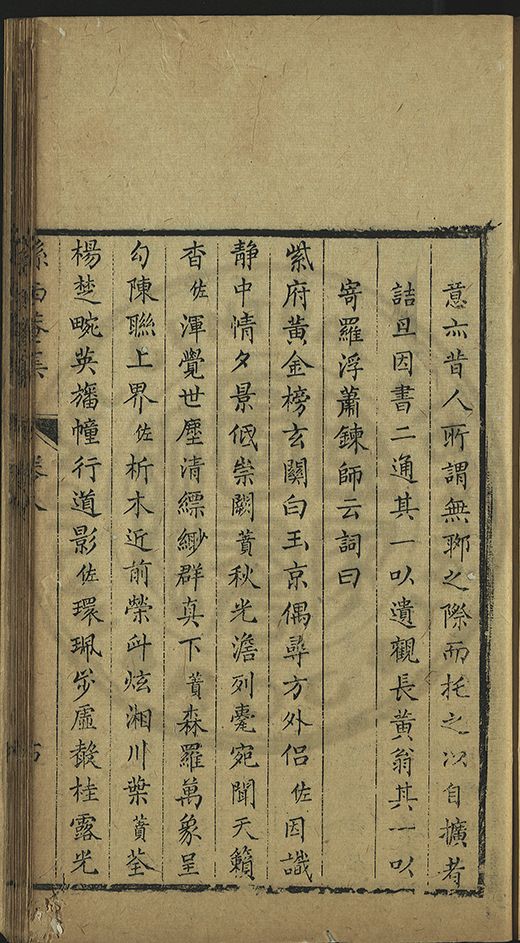 意亦昔人所謂無聊之際而托之以自擴者
詰旦因書二通其一以遺觀長黃翁其一以
寄羅浮蕭鍊師云詞曰
紫府黃金榜玄關白玉京偶尋方外侶佐因識
靜中情夕景低崇闕蕡秋光澹列臺宛聞天籟
杳佐渾覺世塵清縹緲群真下蕡森羅萬象呈
勾陳聯上界佐析木近前榮斗炫湘川葉蕡荃
楊楚畹英旛幢行道影佐環珮步虛聲桂露光
孫西菴集 卷八